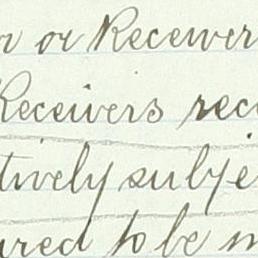 or or Receiver
Receivers rec
tively subje
ured to be m